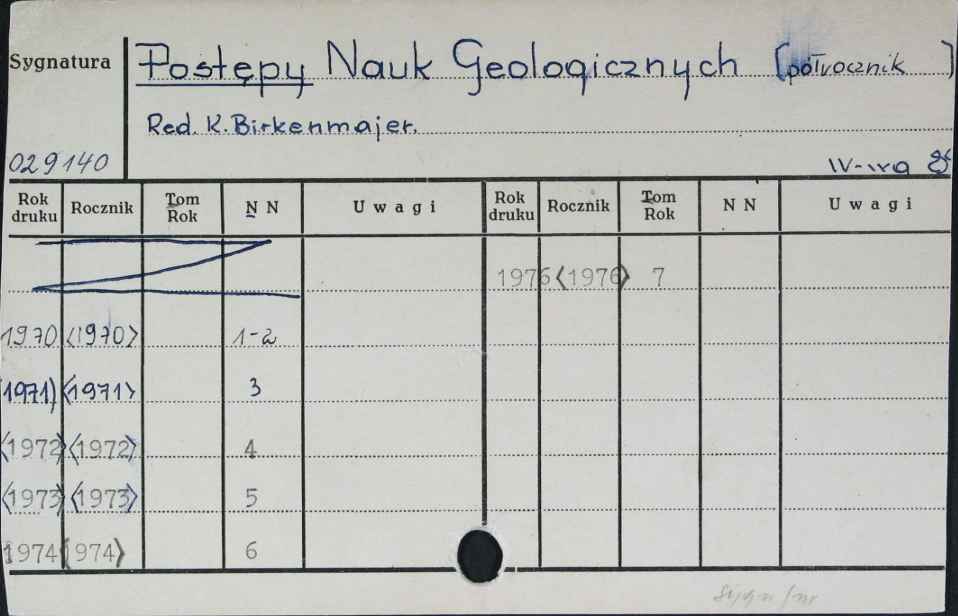 Sygnatura
Postępy Nauk Geologicznych [półrocznik]
Red. K. Birkenmajer.
029140
IV-wa
Rok druku Rocznik Tom Rok N N Uwagi Rok druku Rocznik Tom Rok N N Uwagi
1976 <1976> 7
1970 <1970> 1-2
1971) <1971> 3
<1972> <1972> 4
<1973> <1973> 5
1974 <974> 6